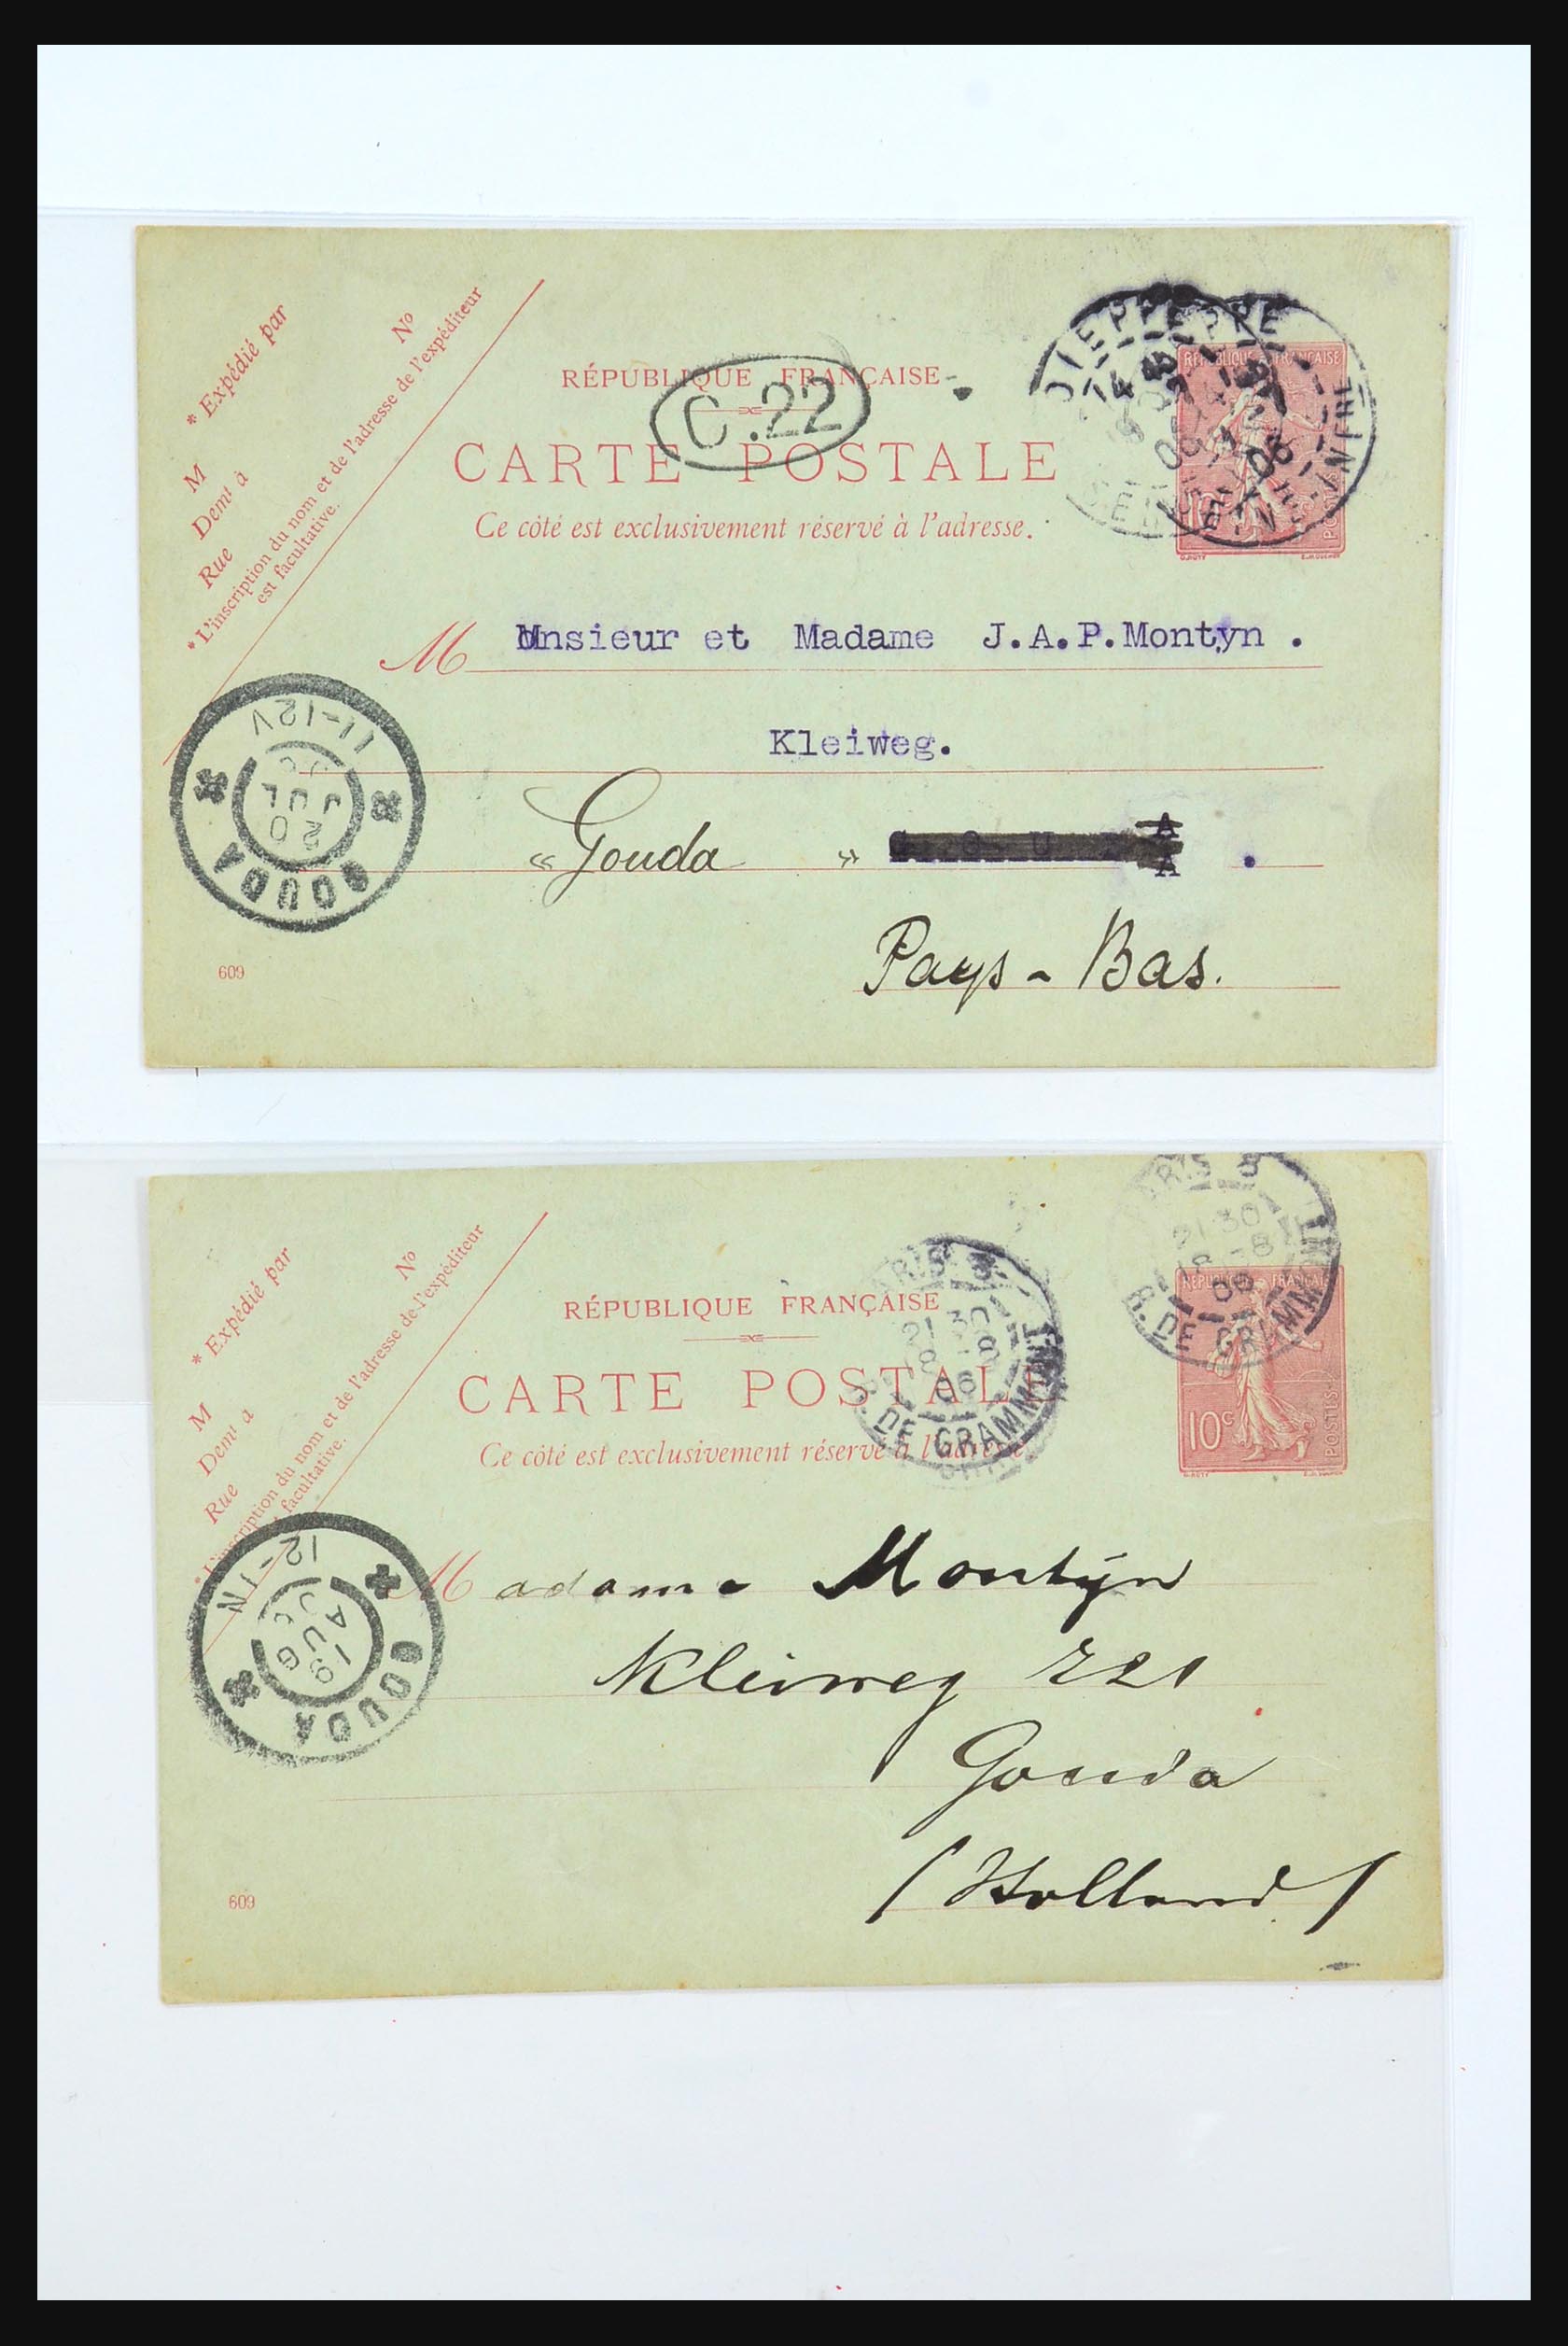 * Expédié par
No
M
Demt à
Rue
* L'inscription du nom et de l'adresse de l'expéditeur
est facultative.
RÉPUBLIQUE FRANÇAISE
C.22
CARTE POSTALE
Ce côté est exclusivement réservé à l'adresse.
DIEPPE
RÉPUBLIQUE FRANÇAISE
10c
POSTES
O.ROTY
M nsieur et Madame J.A.P.Montyn .
Kleiweg.
« Gouda »
Pays - Bas.
11-12V
20
JUL
GOUDA
609
* Expédié par
No
M
Demt à
Rue
L'inscription du nom et de l'adresse de l'expéditeur
facultative.
RÉPUBLIQUE FRANÇAISE
CARTE POSTALE
Ce côté est exclusivement réservé à l'adresse
PARIS 8
21 30
18 - 8
06
R. DE GRAMMONT
PARIS 8
21 30
18 - 8
06
R. DE GRAMMONT
RÉPUBLIQUE FRANÇAISE
10c
POSTES
O.ROTY
Madame Montyn
Kleiweg
Gouda
(Holland)
12-1N
19
AUG
GOUDA
609